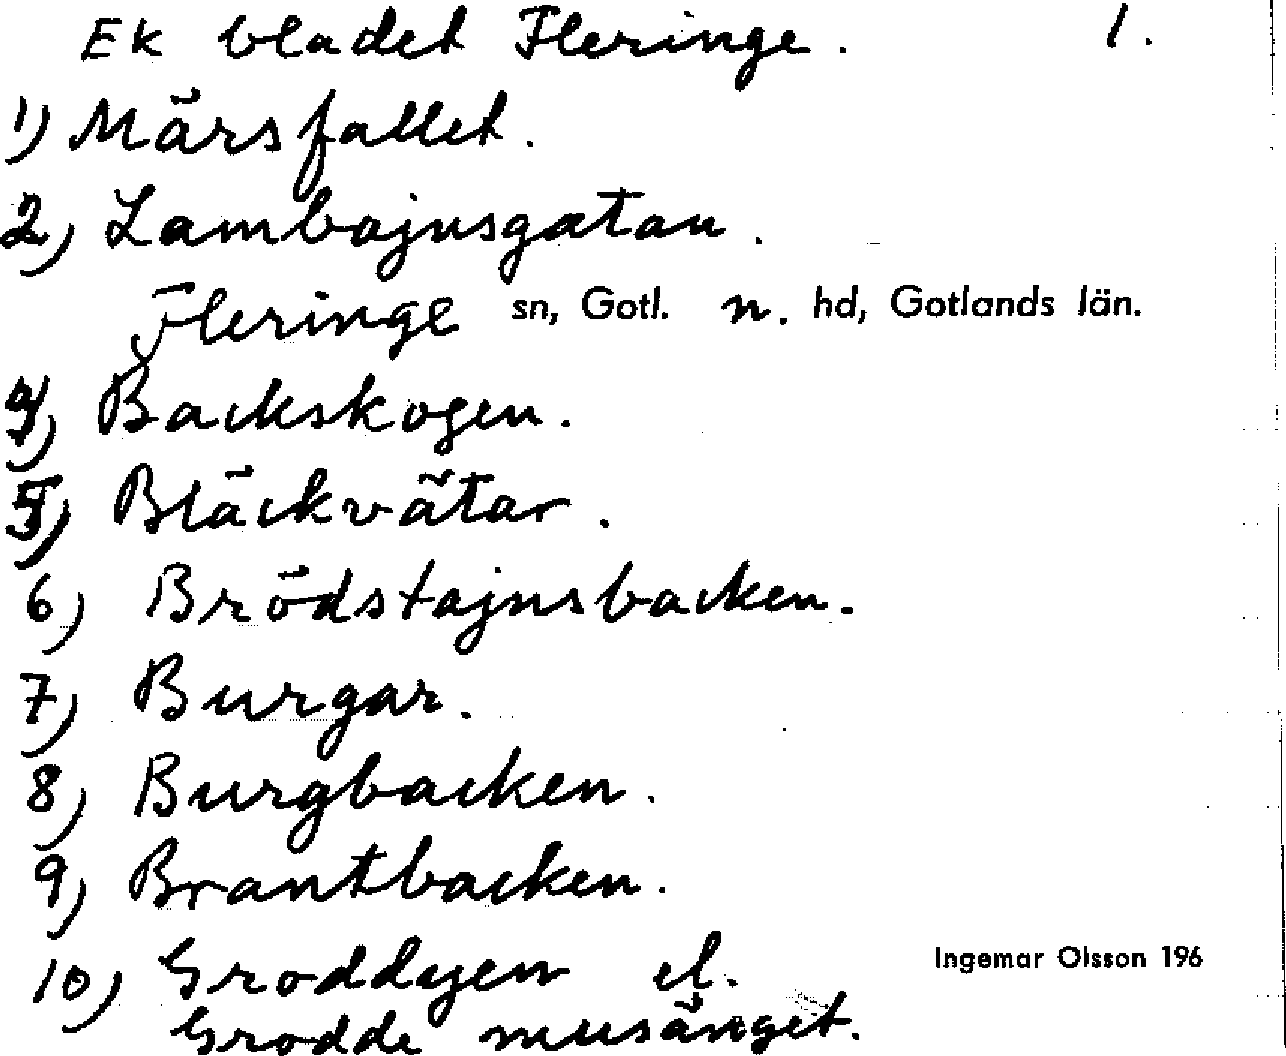 Ek bladet Fleringe. 1.
1) Märsfallet.
2) Lambajnsgatan.
Fleringe sn, Gotl. n. hd, Gotlands län.
4) Backskogen.
5) Bläckvätar.
6) Brödstajnsbacken.
7) Burgar.
8) Burgbacken.
9) Brantbacken.
10) Groddyen el.
Ingemar Olsson 196
Grodde musänget.